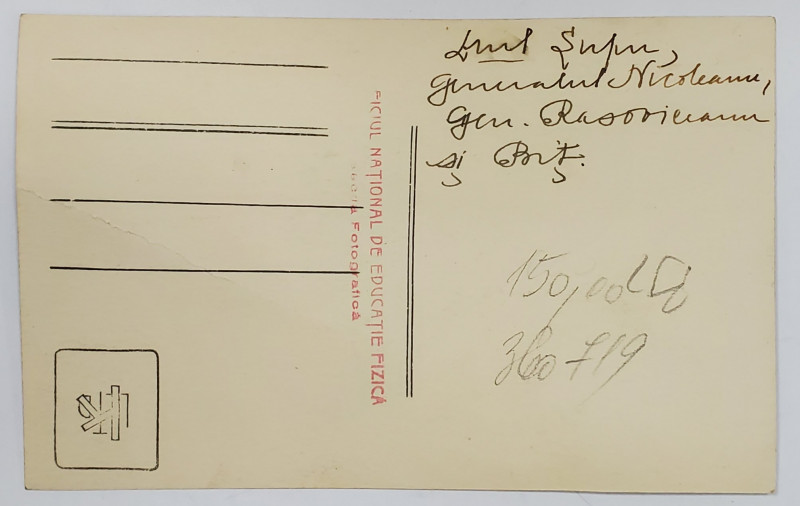 Generalul Nicoleanu,
Gen. Rasoviceanu
și Briț.
FICIUL NAȚIONAL DE EDUCAȚIE FIZICĂ
Fotografică
150,00
360719